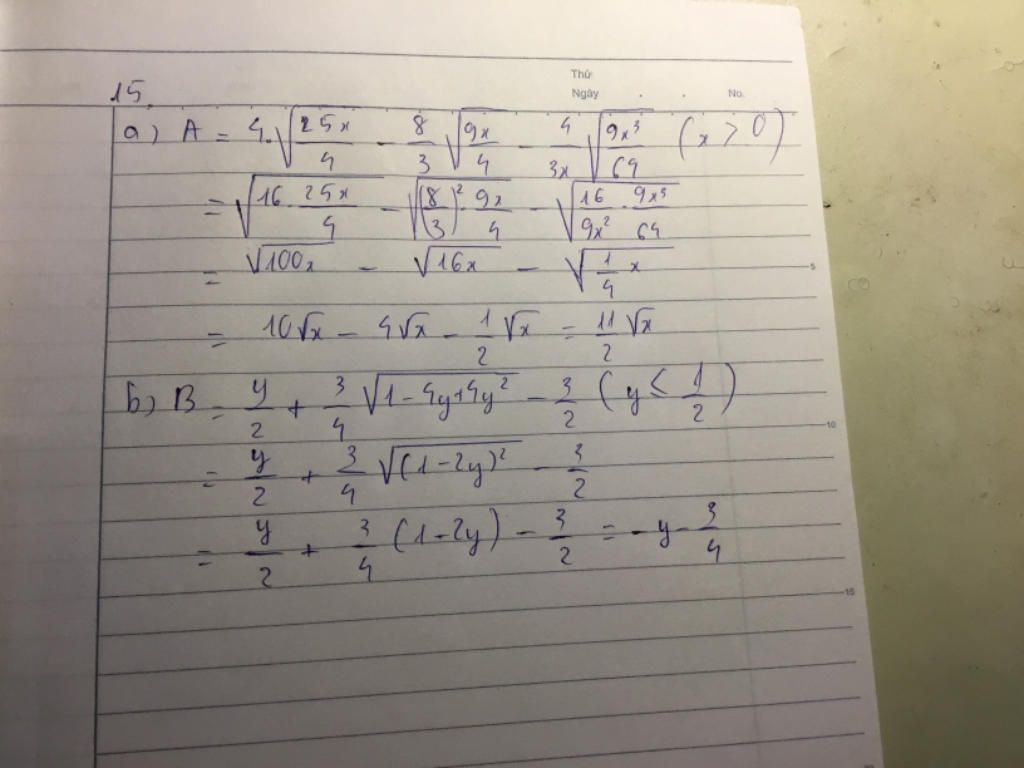 Thứ
Ngày . . No.
15.
a) A = 4.√(25x/4) - 8/3 √(9x/4) - 4/3x √(9x³/64) (x > 0)
= √(16 . 25x/4) - √((8/3)² . 9x/4) - √(16/9x² . 9x³/64)
= √100x - √16x - √(1/4 x)
5
= 10√x - 4√x - 1/2 √x = 11/2 √x
b) B = y/2 + 3/4 √(1-4y+4y²) - 3/2 (y ≤ 1/2)
10
= y/2 + 3/4 √((1-2y)²) - 3/2
= y/2 + 3/4 (1-2y) - 3/2 = -y - 3/4
15
20